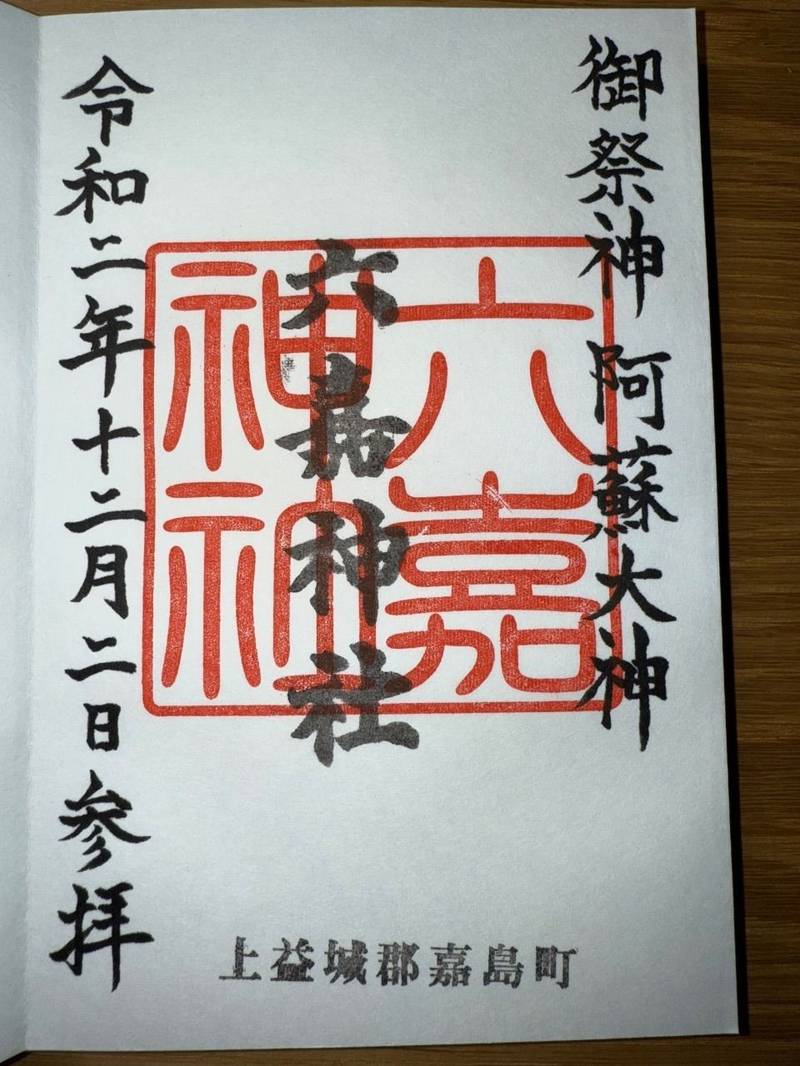 御祭神 阿蘇大神
六嘉
神社
六嘉神社
令和二年十二月二日参拝
上益城郡嘉島町